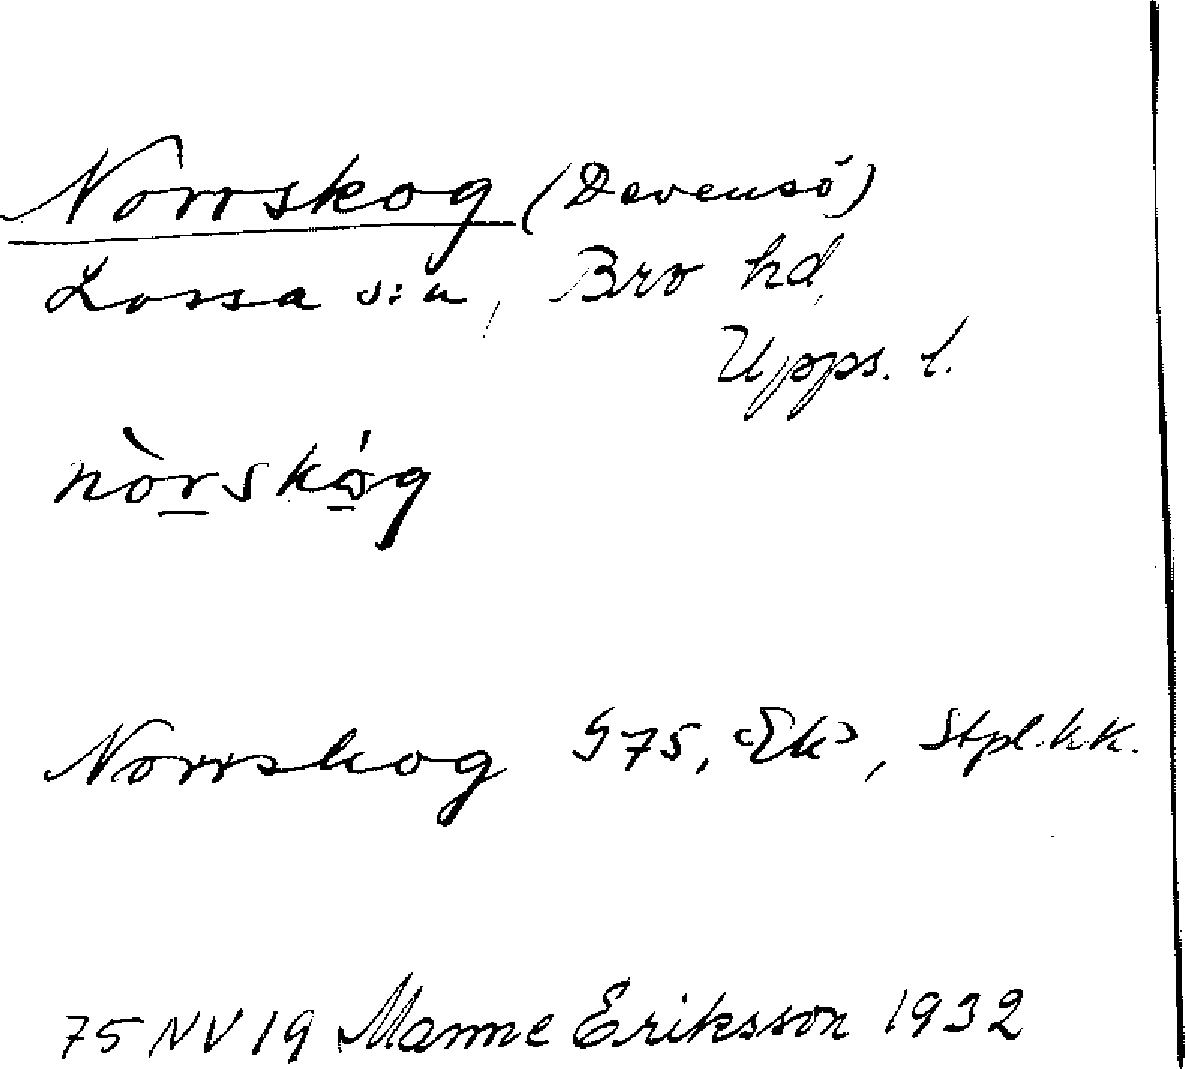 Norrskog (Devensö)
Lossa s:n, Bro hd,
Upps. l.
nòrskóg
Norrskog G 75, <Ek>, Stpl. h.k.
75 NV 19 Manne Eriksson 1932